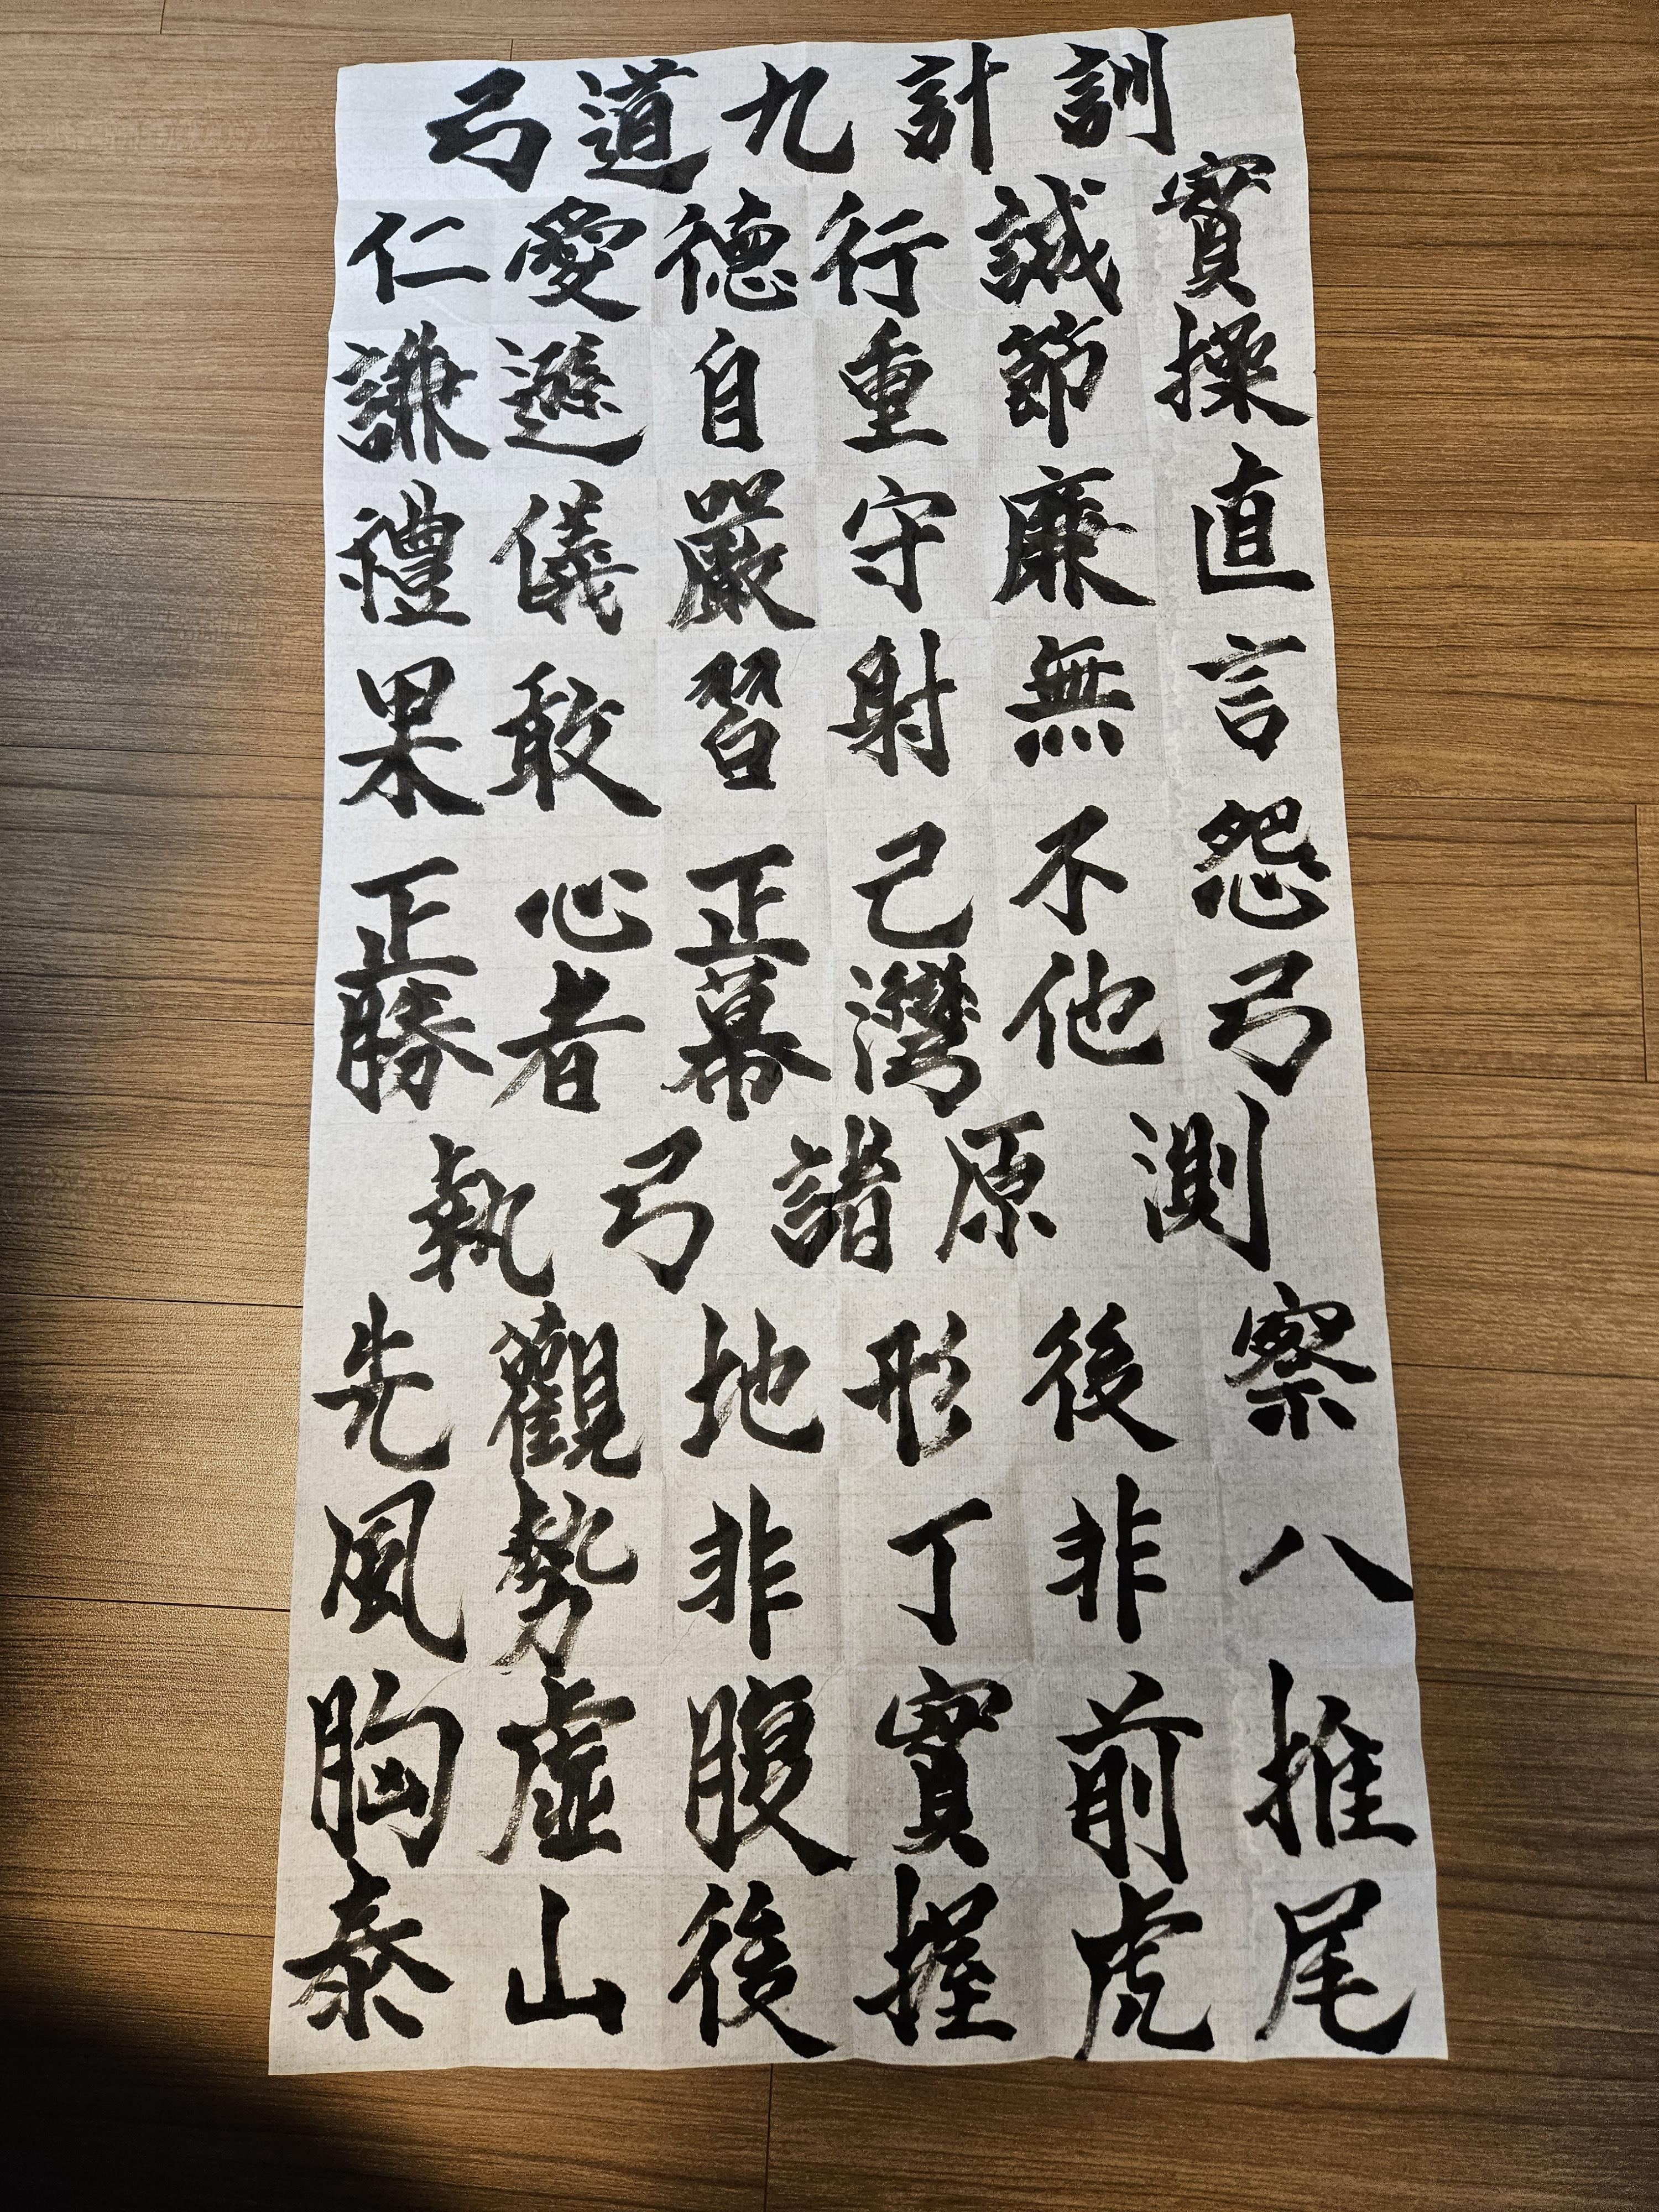 弓道九計訓
仁愛德行誠實
謙遜自重節操
禮儀嚴守廉直
果敢習射無言
正心正己不怨
勝者幕灣他弓
執弓諸原測
先觀地形後察
風勢非丁非八
胸虛腹實前推
泰山後握虎尾